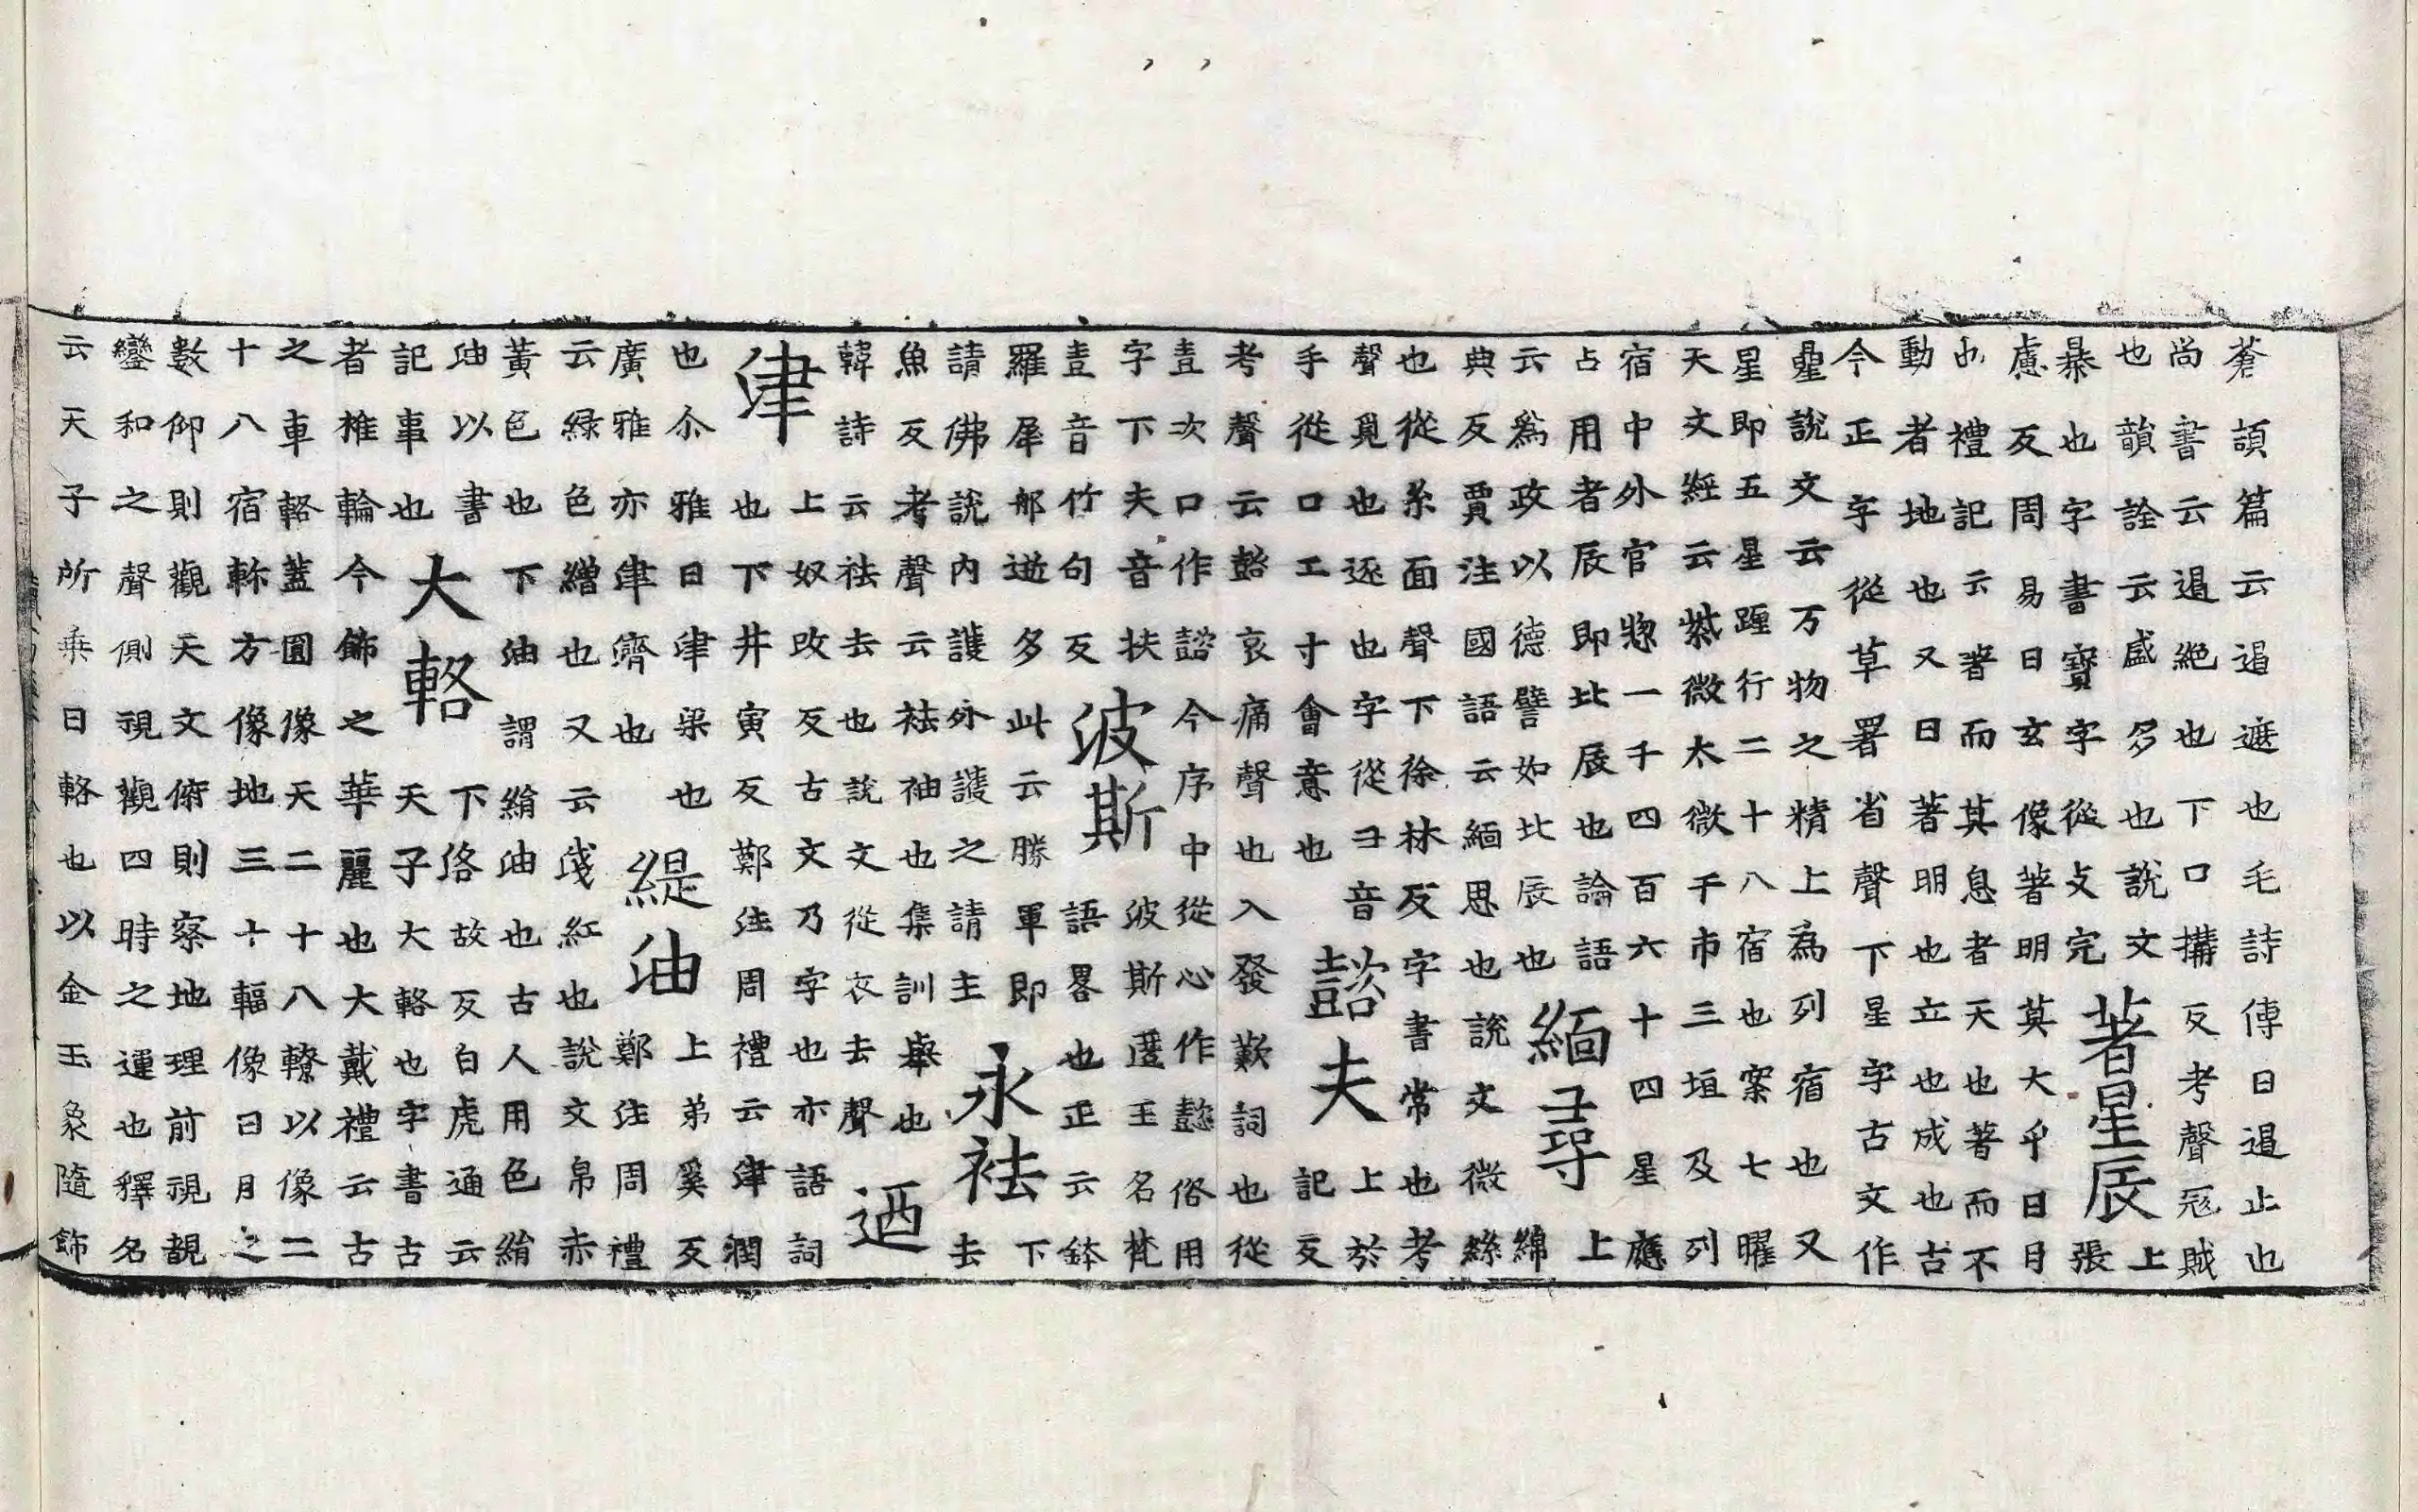 蒼頡篇云遏遮也毛詩傳曰遏止也
尚書云遏絕也下口搆反考聲冦賊
也韻詮云盛多也說文
暴也字書寳字從攴完
著星辰
上
張
慮反周易曰玄像著明莫大乎日月
也禮記云著而其息者天也著而不
動者地也又曰著明也立也成也古
今正字從草署省聲下星字古文作
曐說文云万物之精上為列宿也又
星即五星躔行二十八宿也案七曜
天文經云紫微太微天市三垣及列
宿中外官惣一千四百六十四星應
占用者辰即北辰也論語
云為政以德譬如北辰也
緬尋
上
綿
典反賈注國語云緬思也說文微絲
也從糸面聲下徐林反字書常也考
聲覓也逐也字從彐音
手從口工寸會意也
夫
上於
記反
考聲云哀痛聲也入發歎詞也從
壹次口作今序中從心作懿俗用
字下夫音扶
壹音竹句反
波斯
波斯匿王名梵
語畧也正云鉢
羅犀那逝多此云勝軍即
請佛說內護外護之請主
永祛
下
去
魚反考聲云祛袖也集訓舉也
韓詩云祛去也說文從衣去聲
迺
津
上奴改反古文乃字也亦語詞
也下井寅反鄭注周禮云津潤
也尒雅曰津梁也
廣雅亦津濟也
緹油
上弟奚反
鄭注周禮
云緑色繒也又云淺紅也說文帛赤
黃色也下油謂絹油也古人用色絹
油以書
記事也
大輅
下洛故反白虎通云
天子大輅也字書古
者椎輪今飾之華麗也大戴禮云古
之車輅蓋圓像天二十八轑以像二
十八宿軫方像地三十輻像日月之
數仰則觀天文俯則察地理前視覩
鸞和之聲側視觀四時之運也釋名
云天子所乗曰輅也以金玉象隨飾